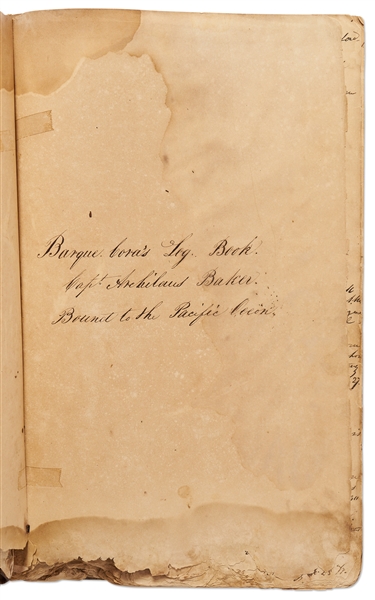 Barque Cora's Log Book.
Capt Archilaus Baker.
Bound to the Pacific Ocion.